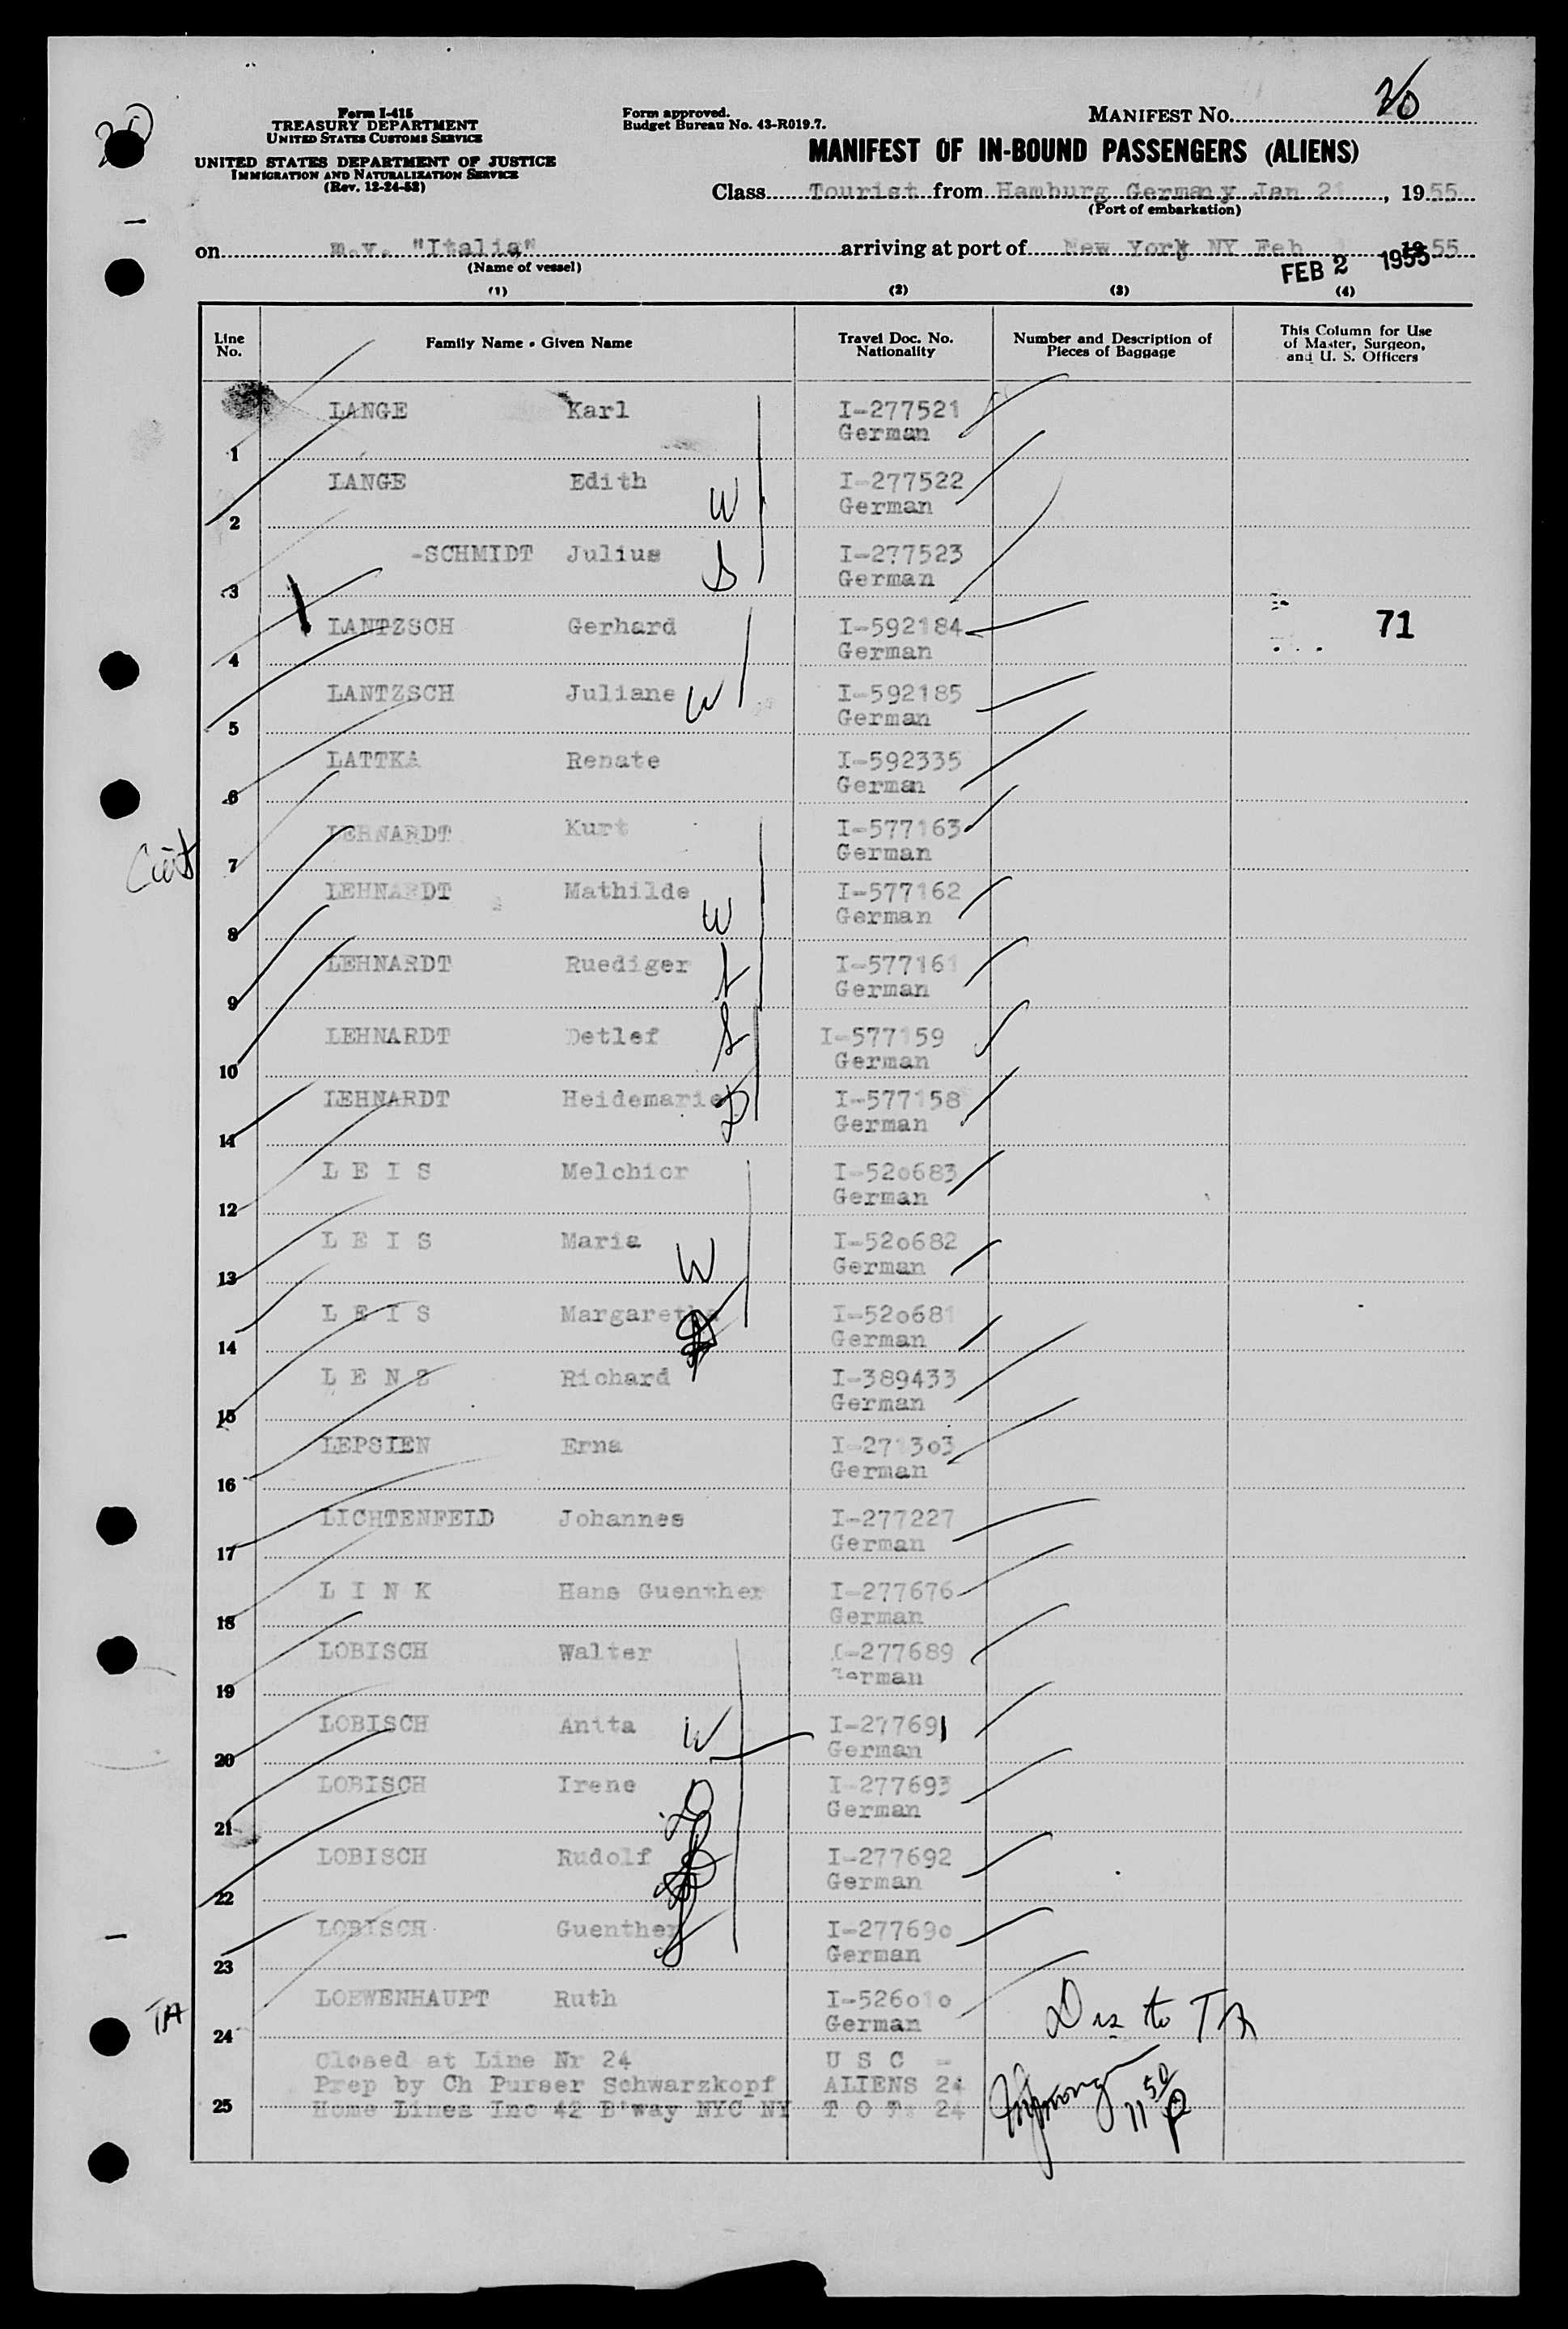 20
Form I-415
TREASURY DEPARTMENT
UNITED STATES CUSTOMS SERVICE
UNITED STATES DEPARTMENT OF JUSTICE
IMMIGRATION AND NATURALIZATION SERVICE
(Rev. 12-24-52)
Form approved.
Budget Bureau No. 43-R019.7.
MANIFEST NO. 20
MANIFEST OF IN-BOUND PASSENGERS (ALIENS)
Class Tourist from Hamburg Germany Jan 21, 1955
(Port of embarkation)
on m.v. "Italia" arriving at port of New York NY Feb 1955
(Name of vessel)
FEB 2 1955
(1) (2) (3) (4)
Line No.
Family Name - Given Name
Travel Doc. No. Nationality
Number and Description of Pieces of Baggage
This Column for Use of Master, Surgeon, and U. S. Officers
LANGE Karl I-277521
1 German
LANGE Edith W I-277522
2 German
-SCHMIDT Julius S I-277523
3 German
LANTZSCH Gerhard I-592184 71
4 German
LANTZSCH Juliane W I-592185
5 German
LATTKA Renate I-592335
6 German
LEHNARDT Kurt I-577163
7 German
LEHNARDT Mathilde W I-577162
8 German
LEHNARDT Ruediger S I-577161
9 German
LEHNARDT Detlef S I-577159
10 German
LEHNARDT Heidemarie D I-577158
11 German
L E I S Melchior I-520683
12 German
L E I S Maria W I-520682
13 German
L E I S Margaretha I-520681
14 German
L E N Z Richard I-389433
15 German
LEPSIEN Erna I-271303
16 German
LICHTENFELD Johannes I-277227
17 German
L I N K Hans Guenther I-277676
18 German
LOBISCH Walter I-277689
19 German
LOBISCH Anita W I-277691
20 German
LOBISCH Irene D I-277693
21 German
LOBISCH Rudolf I-277692
22 German
LOBISCH Guenther S I-277690
23 German
TA LOEWENHAUPT Ruth I-526010
24 German
Dis to TA
Closed at Line Nr 24 U S C -
Prep by Ch Purser Schwarzkopf ALIENS 24
25 Home Lines Inc 42 B'way NYC NY T O T: 24
11 50 P